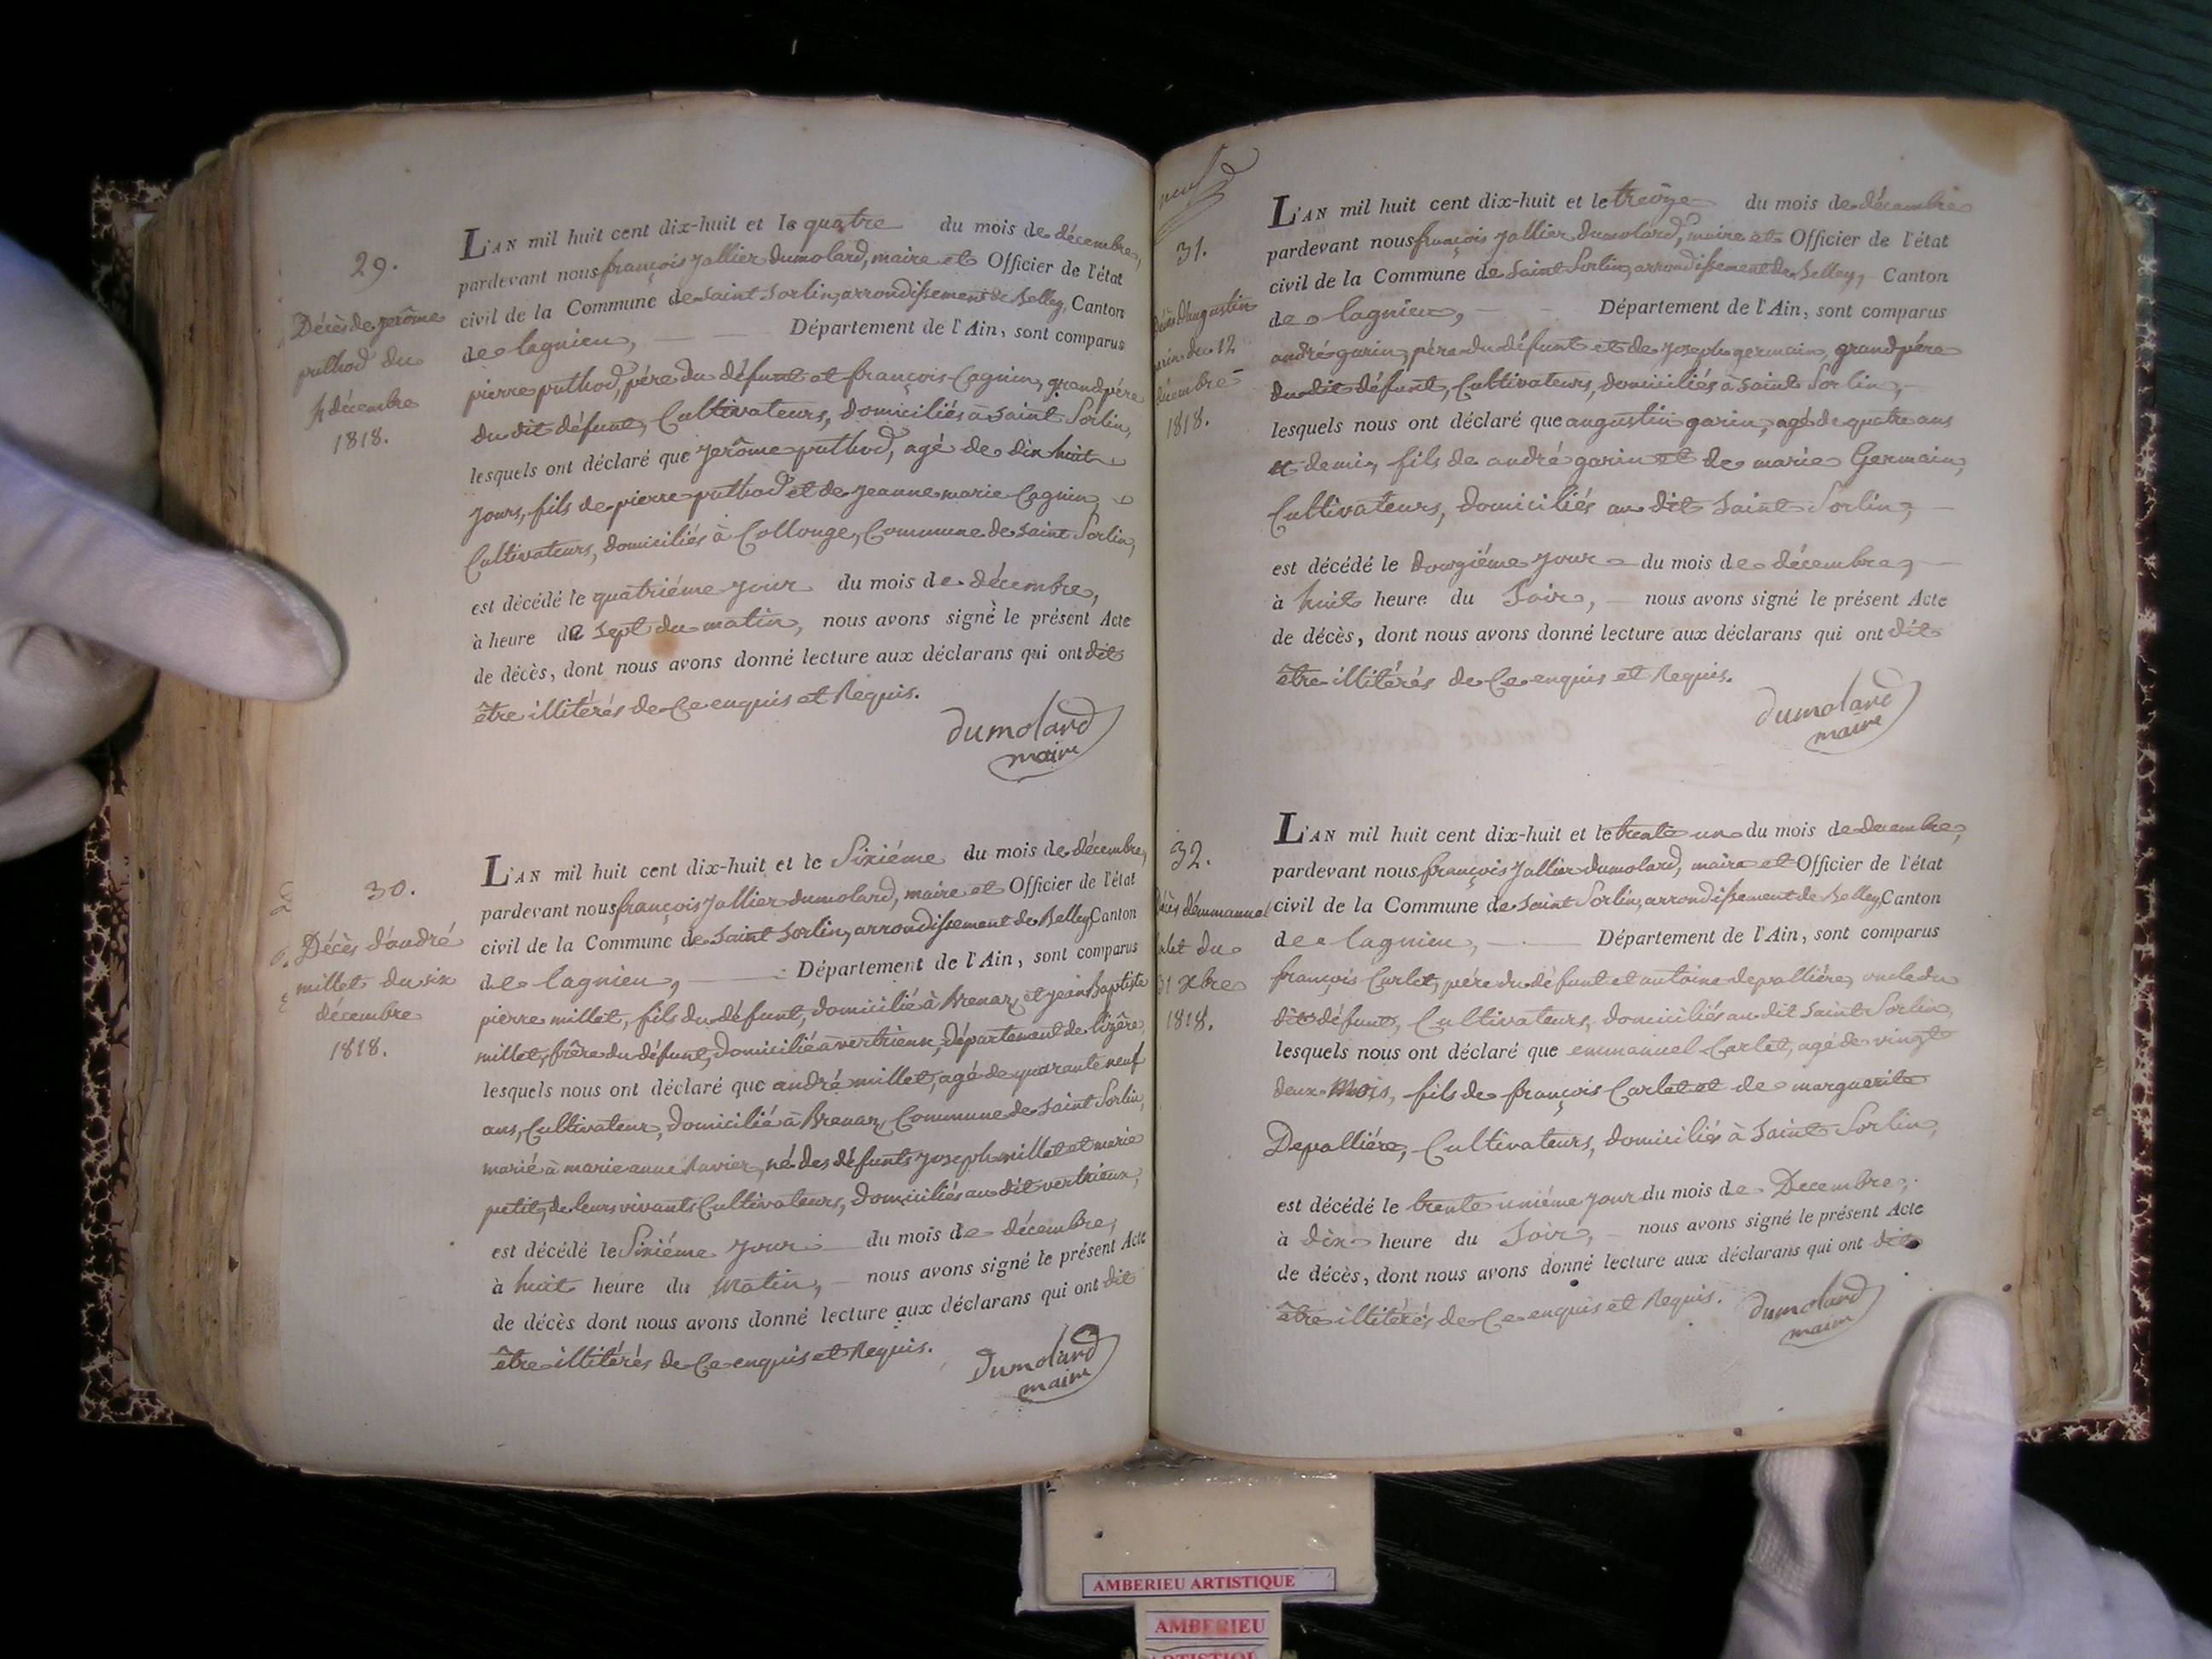 29.
Décès de jerôme
puthod du
4 décembre
1818.
L'AN mil huit cent dix-huit et le quatre du mois de décembre,
pardevant nous françois Jallier Dumolard, maire et Officier de l'état
civil de la Commune de Saint Sorlin, arrondissement de Belley, Canton
de lagnieu, Département de l'Ain, sont comparus
pierre puthod, pére du défunt et françois Cagnin, grand pére
du dit défunt, Cultivateurs, domiciliés à Saint Sorlin,
lesquels ont déclaré que jerôme puthod, agé de dix huit
jours, fils de pierre puthod et de jeanne marie Cagnin,
Cultivateurs, domiciliés à Collonge, Commune de Saint Sorlin,
est décédé le quatriéme jour du mois de décembre,
à heure de sept du matin, nous avons signé le présent Acte
de décès, dont nous avons donné lecture aux déclarans qui ont dit
être illitérés de Ce enquis et Requis.
Dumolard
maire
30.
Décès d'andré
millet du six
décembre
1818.
L'AN mil huit cent dix-huit et le Sixiéme du mois de décembre,
pardevant nous françois Jallier dumolard, maire et Officier de l'état
civil de la Commune de Saint Sorlin, arrondissement de Belley, Canton
de lagnieu, Département de l'Ain, sont comparus
pierre millet, fils du défunt, domicilié à Brenaz, et jean Baptiste
millet, frére du défunt, domicilié à vertrieux, département de lizêre,
lesquels nous ont déclaré que andré millet, agé de quarante neuf
ans, Cultivateur, domicilié à Brenaz, Commune de Saint Sorlin,
marié à marie anne Ravier, né des défunts joseph millet et marie
petit, de leurs vivants Cultivateurs, domiciliés au dit vertrieux,
est décédé le Sixiéme jour du mois de décembre,
à huit heure du Matin, nous avons signé le présent Acte
de décès dont nous avons donné lecture aux déclarans qui ont dit
être illitérés de Ce enquis et Requis.
Dumolard
maire
neuf
31.
décès d'augustin
du 12
décembre
1818.
L'AN mil huit cent dix-huit et le treize du mois de décembre
pardevant nous françois Jallier Dumolard, maire et Officier de l'état
civil de la Commune de Saint Sorlin, arrondissement de Belley, Canton
de lagnieu, Département de l'Ain, sont comparus
andré garin, pére du défunt et de joseph germain, grand pére
du dit défunt, Cultivateurs, domiciliés à Saint Sorlin,
lesquels nous ont déclaré que augustin garin, agé de quatre ans
et demi, fils de andré garin et de marie Germain,
Cultivateurs, domiciliés au dit Saint Sorlin,
est décédé le douziéme jour du mois de décembre,
à huit heure du Soir, nous avons signé le présent Acte
de décès, dont nous avons donné lecture aux déclarans qui ont dit
être illitérés de Ce enquis et Requis.
Dumolard
maire
32.
décès d'emmanuel
Carlet du
31 Xbre
1818.
L'AN mil huit cent dix-huit et le trente un du mois de decembre,
pardevant nous françois Jallier dumolard, maire et Officier de l'état
civil de la Commune de Saint Sorlin, arrondissement de Belley, Canton
de lagnieu, Département de l'Ain, sont comparus
françois Carlet, pére du défunt et antoine depalliére, oncle du
dit défunt, Cultivateurs, domiciliés au dit Saint Sorlin,
lesquels nous ont déclaré que emmanuel Carlet, agé de vingt
deux Mois, fils de françois Carlet et de marguerite
Depalliére, Cultivateurs, domiciliés à Saint Sorlin,
est décédé le trente uniéme jour du mois de Decembre,
à dix heure du Soir, nous avons signé le présent Acte
de décès, dont nous avons donné lecture aux déclarans qui ont dit
être illitérés de Ce enquis et Requis.
Dumolard
maire
AMBERIEU ARTISTIQUE
AMBERIEU
ARTISTIQUE